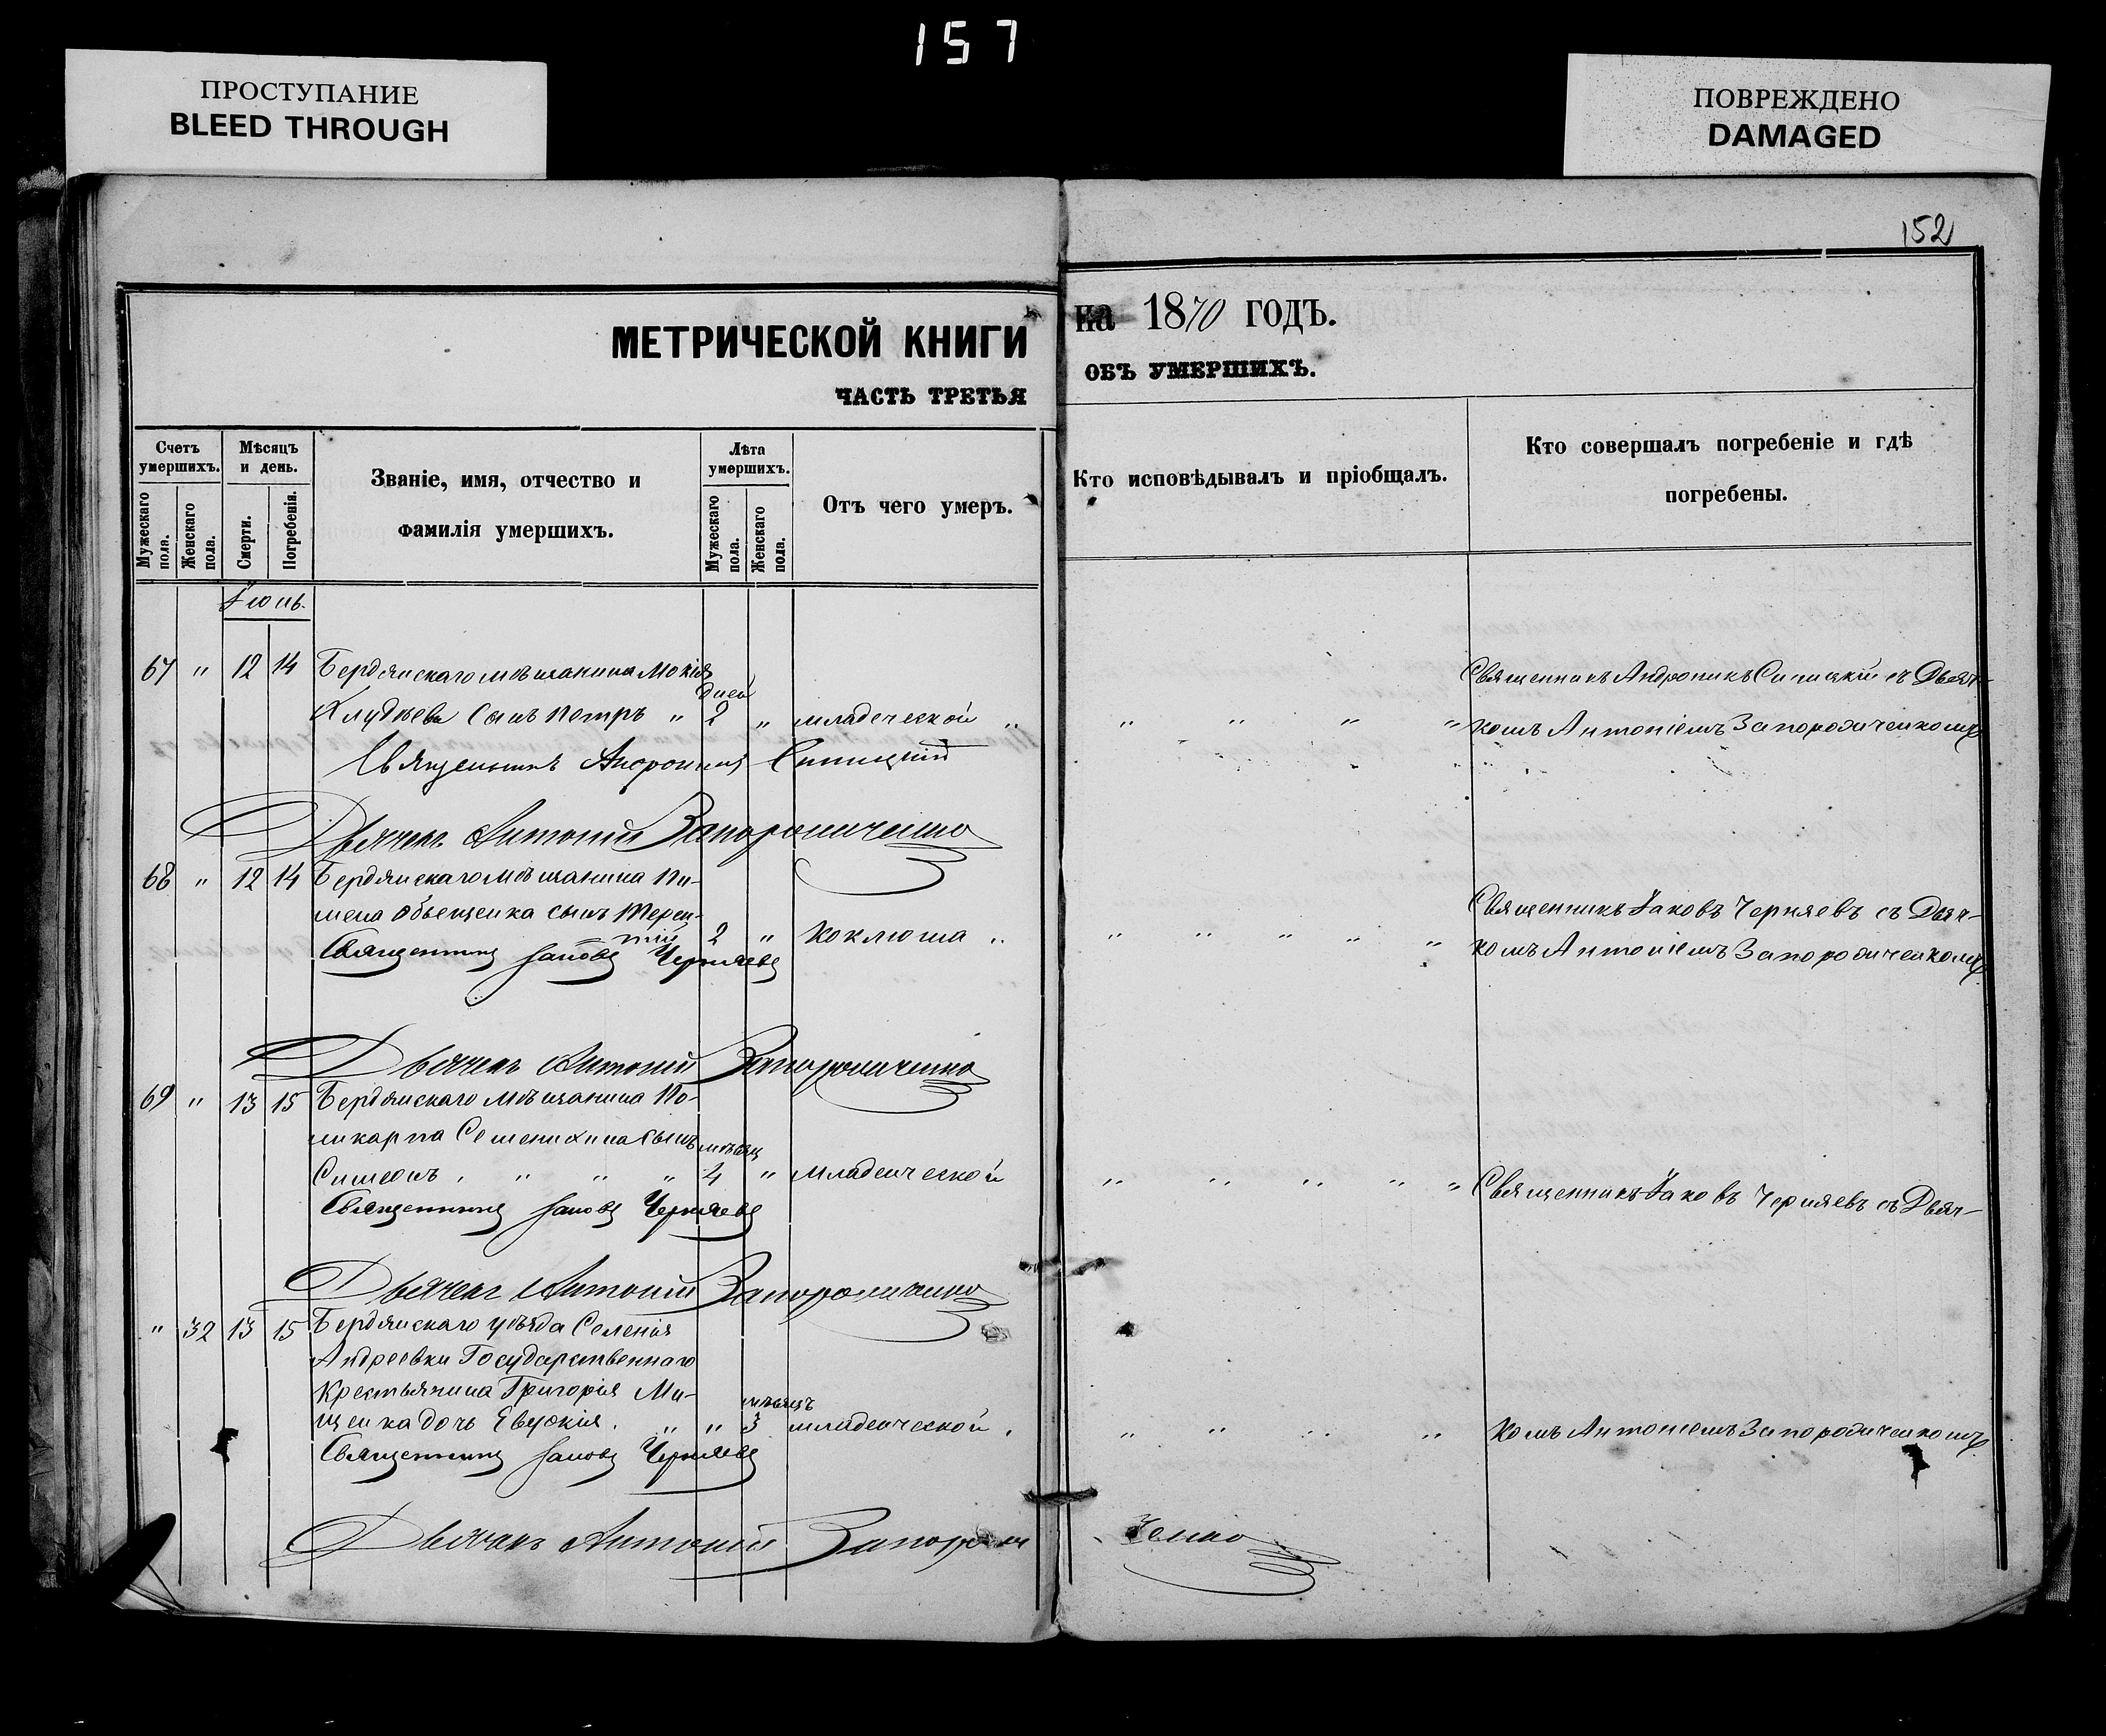 157
ПРОСТУПАНИЕ
BLEED THROUGH
ПОВРЕЖДЕНО
DAMAGED
152
МЕТРИЧЕСКОЙ КНИГИ
на 1870 ГОДЪ.
ЧАСТЬ ТРЕТЬЯ
ОБЪ УМЕРШИХЪ.
Счетъ умершихъ.
Мужескаго пола.
Женскаго пола.
Мѣсяцъ и день.
Смерти.
Погребенія.
Званіе, имя, отчество и
фамилія умершихъ.
Лѣта умершихъ.
Мужескаго пола.
Женскаго пола.
Отъ чего умеръ.
Кто исповѣдывалъ и пріобщалъ.
Кто совершалъ погребеніе и гдѣ
погребены.
Іюнь.
67 " 12 14 Бердянскаго мѣщанина Мокія
дней
сынъ Петръ " 2 " младенческой "
Священникъ Андроникъ Синицкій съ Дьяч-
" " " " комъ Антоніемъ Запорожченкомъ
Священникъ Андроникъ Синицкій
Дьячекъ Антоній Запорожченко
68 " 12 14 Бердянскаго мѣщанина Пи-
мена Обьещенка сынъ Терен-
тій 2 " Коклюша "
Священникъ Іаковъ Черняевъ съ Дьяч-
" " " " " комъ Антоніемъ Запорожченкомъ
Священникъ Іаковъ Черняевъ
Дьячекъ Антоній Запорожченко
69 " 13 15 Бердянскаго мѣщанина По-
ликарпа Семенихина сынъ мѣсяц
Симеонъ " " " 4 " Младенческой
" " " " " Священникъ Іаковъ Черняевъ съ Дьяч-
Священникъ Іаковъ Черняевъ
Дьячекъ Антоній Запорожченко
" 32 13 15 Бердянскаго уѣзда Селенія
Андреевки Государственнаго
Крестьянина Григорія Ми-
мѣсяцъ
щенка дочь Евдокія " " 3 младенческой
" " " " комъ Антоніемъ Запорожченкомъ
Священникъ Іаковъ Черняевъ
Дьячекъ Антоній Запорожченко